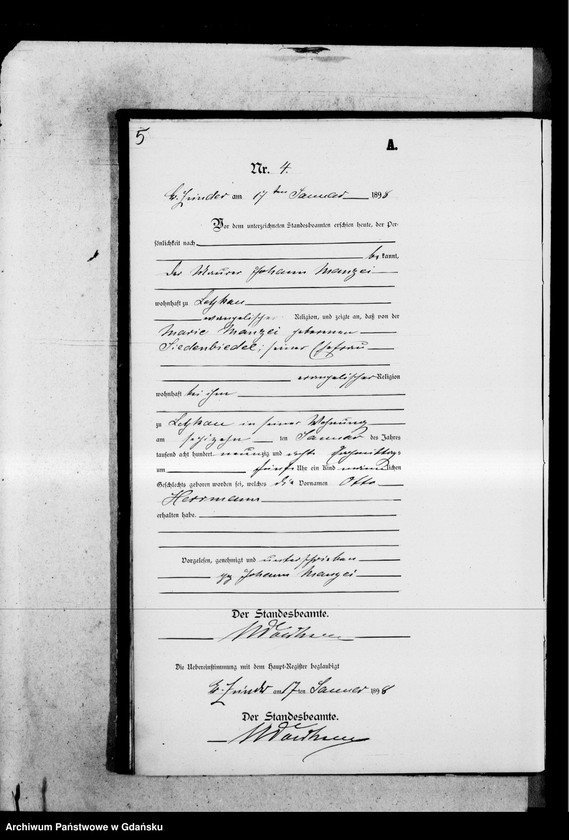 5
A.
Nr. 4.
Gr. Zünder am 17ten Januar 1898
Vor dem unterzeichneten Standesbeamten erschien heute, der Per-
sönlichkeit nach
be kannt,
der Maurer Johann Manzei
wohnhaft zu Letzkau
evangelischer Religion, und zeigte an, daß von der
Marie Manzei geborenen
Siedenbiedel, seiner Ehefrau
evangelischer Religion
wohnhaft bei ihm
zu Letzkau in seiner Wohnung
am sechszehn ten Januar des Jahres
tausend acht hundert neunzig und acht Nachmittags
um fünf Uhr ein Kind männlichen
Geschlechts geboren worden sei, welches die Vornamen Otto
Herrmann
erhalten habe.
Vorgelesen, genehmigt und unterschrieben
gez Johann Manzei
Der Standesbeamte.
Die Uebereinstimmung mit dem Haupt-Register beglaubigt
Gr. Zünder am 17ten Januar 1898
Der Standesbeamte.
Archiwum Państwowe w Gdańsku